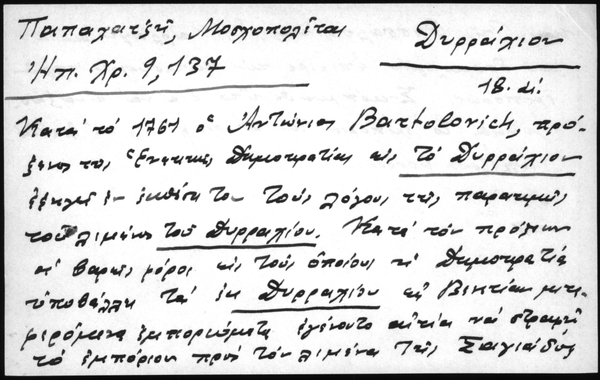 Παπαχατζῆ, Μοσχοπολῖται
Δυρράχιον
Ἠπ. Χρ. 9, 137
18. αἰ.
Κατὰ τὸ 1761 ὁ Ἀντώνιος Bartolovich, πρό-
ξενος τῆς Ἑνετικῆς Δημοκρατίας εἰς τὸ Δυρράχιον
ἐξηγεῖ ἐν ἐκθέσει του τοὺς λόγους τῆς παρακμῆς
τοῦ λιμένος τοῦ Δυρραχίου. Κατὰ τὸν πρόξενον
οἱ βαρεῖς φόροι εἰς τοὺς ὁποίους ἡ Δημοκρατία
ὑποβάλλει τὰ ἐκ Δυρραχίου εἰς Βενετίαν μετα-
φερόμενα ἐμπορεύματα ἐγένοντο αἰτία νὰ στραφῇ
τὸ ἐμπόριον πρὸς τὸν λιμένα τῆς Σαγιάδος